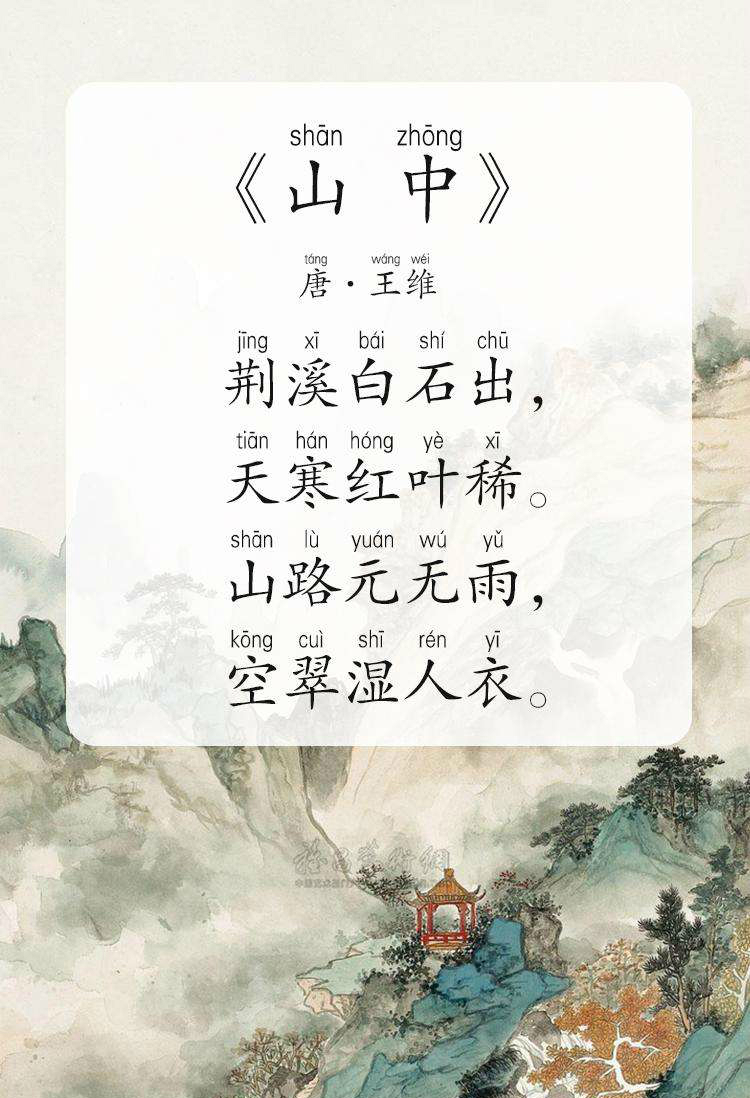 shān zhōng
《山 中》
táng wáng wéi
唐·王维
jīng xī bái shí chū
荆溪白石出，
tiān hán hóng yè xī
天寒红叶稀。
shān lù yuán wú yǔ
山路元无雨，
kōng cuì shī rén yī
空翠湿人衣。